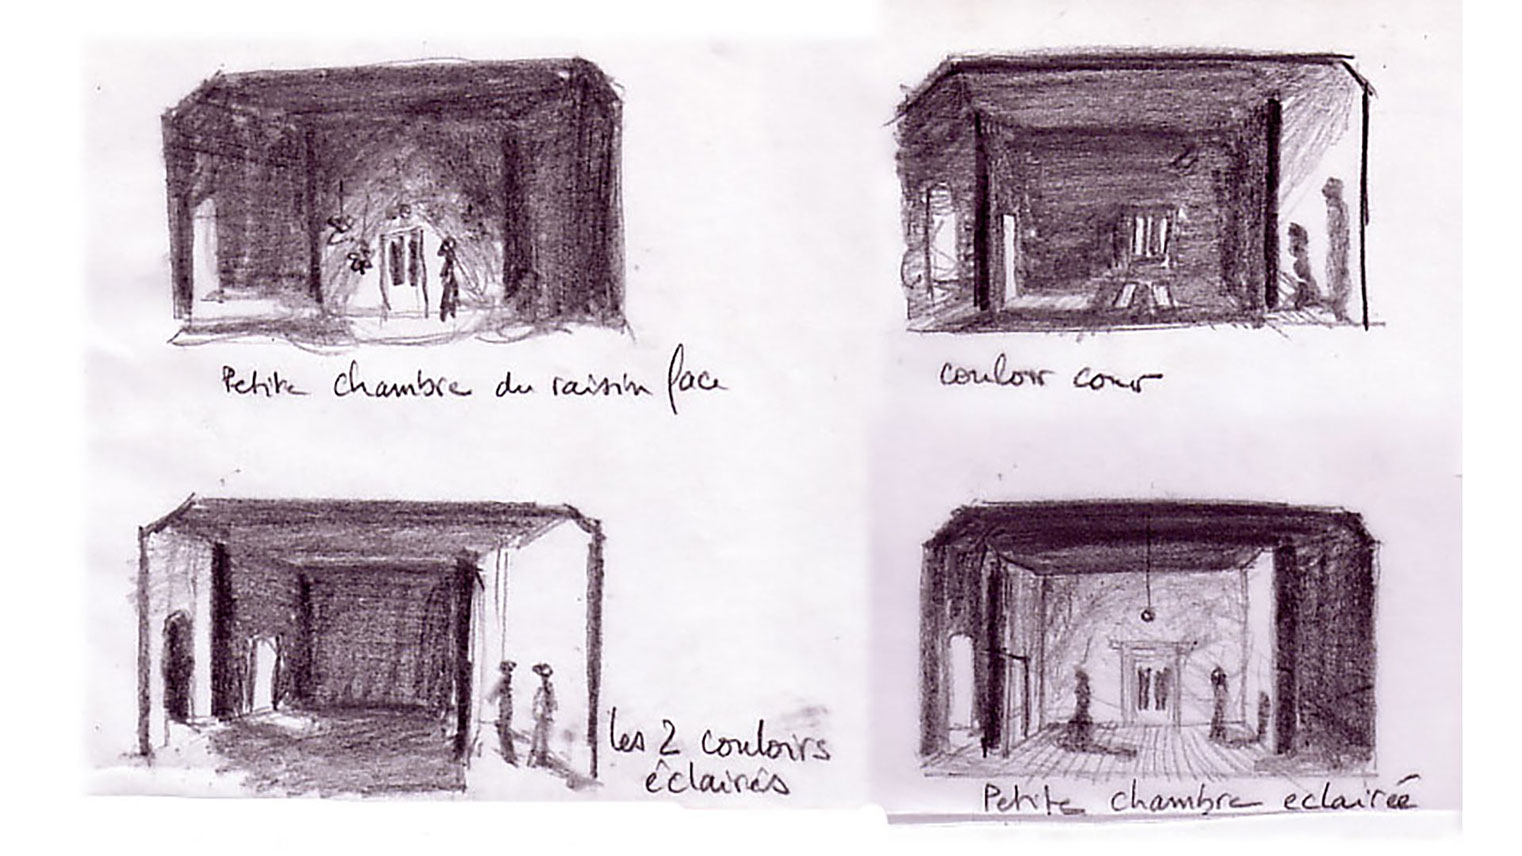 Petite chambre du raisin face
couloir cour
les 2 couloirs
éclairés
Petite chambre eclairée